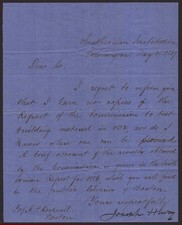 Smithsonian Institution
Dear Sir,
I regret to inform you
that I have no copies of the
Report of the Commission to test
building material in nor do I
know where one can be
A brief account of the results obtained
by the Commission is in the Smith-
sonian Report for 1856 which you will find
in the public libraries of Boston.
Yours respectfully
Joseph Henry
Boston